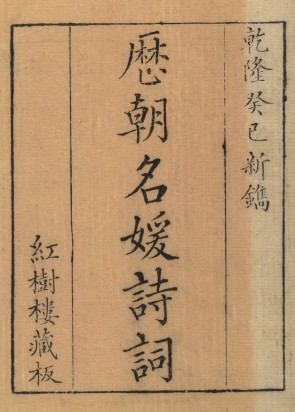 乾隆癸巳新鐫
歴朝名媛詩詞
紅樹樓藏板